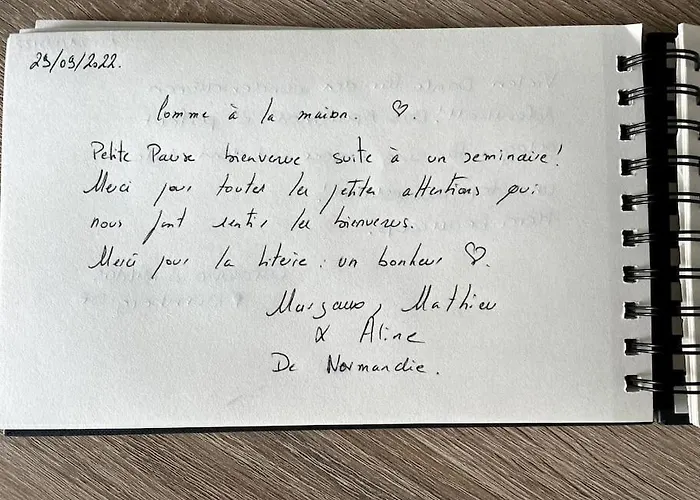 29/09/2022.
Comme à la maison. ♡.
Petite Pause bienvenue suite à un seminaire!
Merci pour toutes les petites attentions qui
nous font sentir les bienvenus.
Merci pour la literie : un bonheur ♡.
Margaux, Mathieu
& Aline
De Normandie.